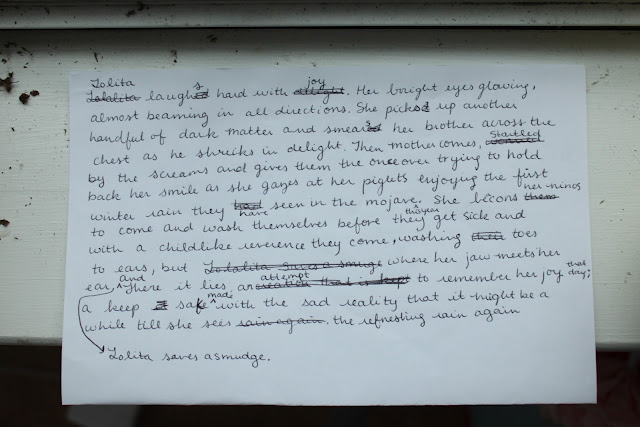 Lolita joy
Lolalita laughs hard with delight. Her bright eyes glowing,
almost beaming in all directions. She picks up another
handful of dark matter and smears her brother across the
chest as he shrieks in delight. Then mother comes, Startled
by the screams and gives them the onceover trying to hold
back her smile as she gazes at her piglets enjoying the first
winter rain they had have seen in the mojave. She becons them her ninos
to come and wash themselves before they get sick and
with a childlike reverence they come, washing their toes
to ears, but Lolalita saves a smuge where her jaw meets her
ear, and there it lies, an attempt to remember her joy that day;
a keep sake made with the sad reality that it might be a
while till she sees rain again. the refreshing rain again
Lolita saves a smudge.